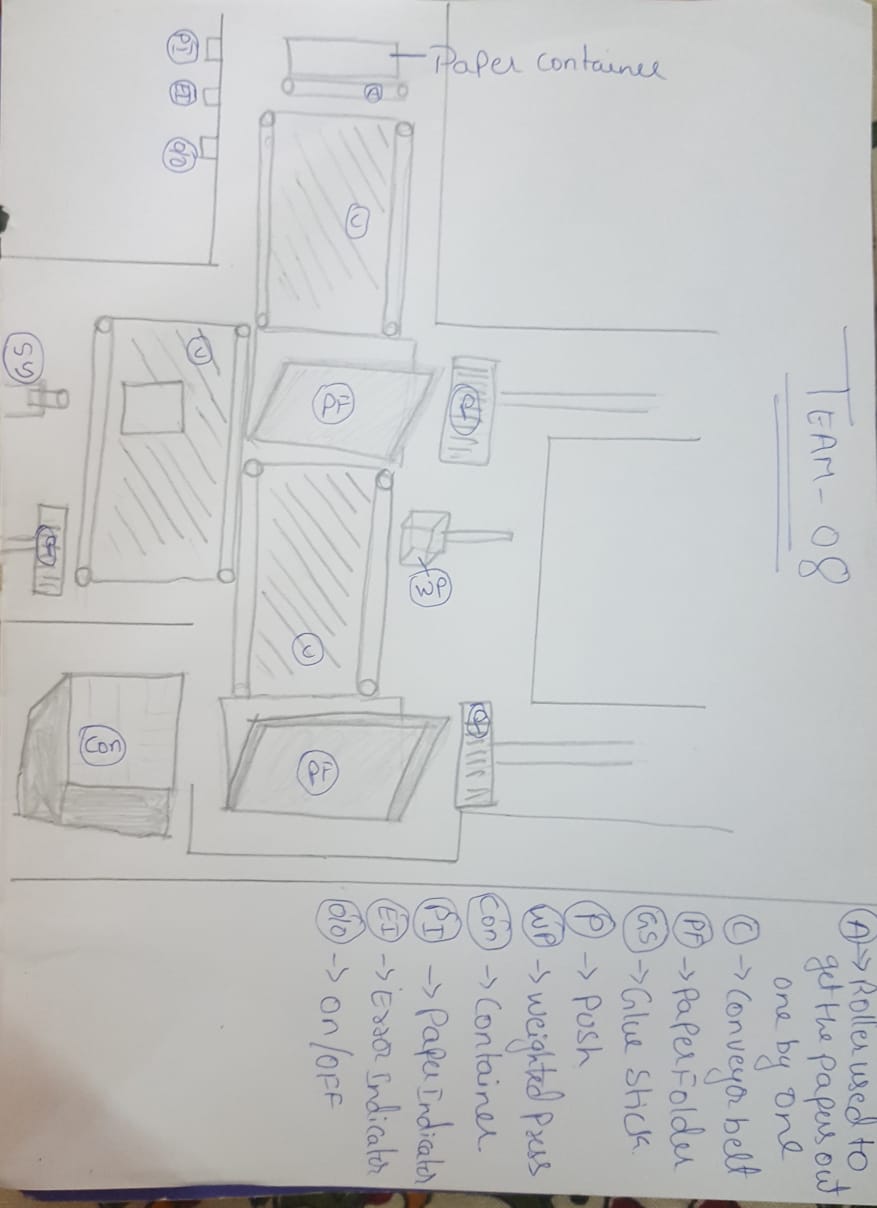 TEAM-08
Paper container
PI
EI
O/O
C
PF
P
C
GS
P
C
WP
PF
P
Con
A
A → Roller used to
get the papers out
one by one
C → Conveyor belt
PF → Paper Folder
GS → Glue Stick
P → Push
WP → Weighted Press
Con → Container
PI → Paper Indicator
EI → Error Indicator
O/O → ON/OFF